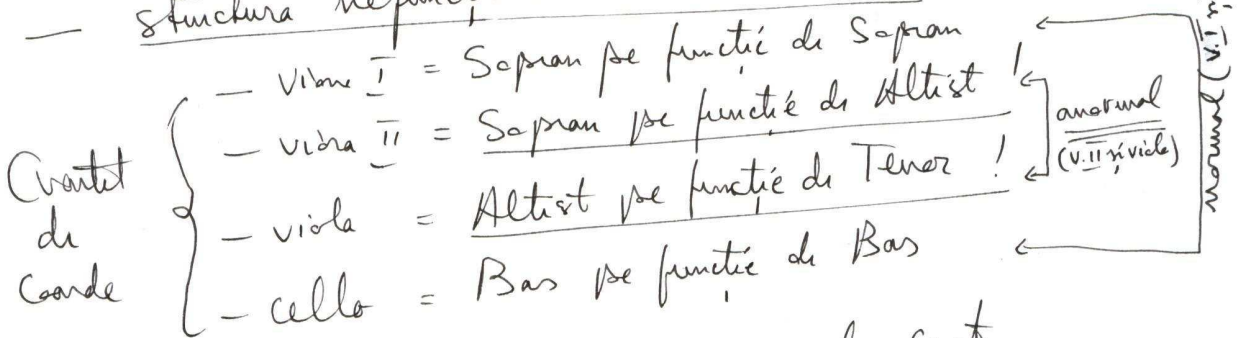 — structura
Cvartet de Coarde
— vioara I = Sopran pe funcție de Sopran
— vioara II = Sopran pe funcție de Altist !
— viola = Altist pe funcție de Tenor !
— cello = Bas pe funcție de Bas
anormal
(v. II și viola)